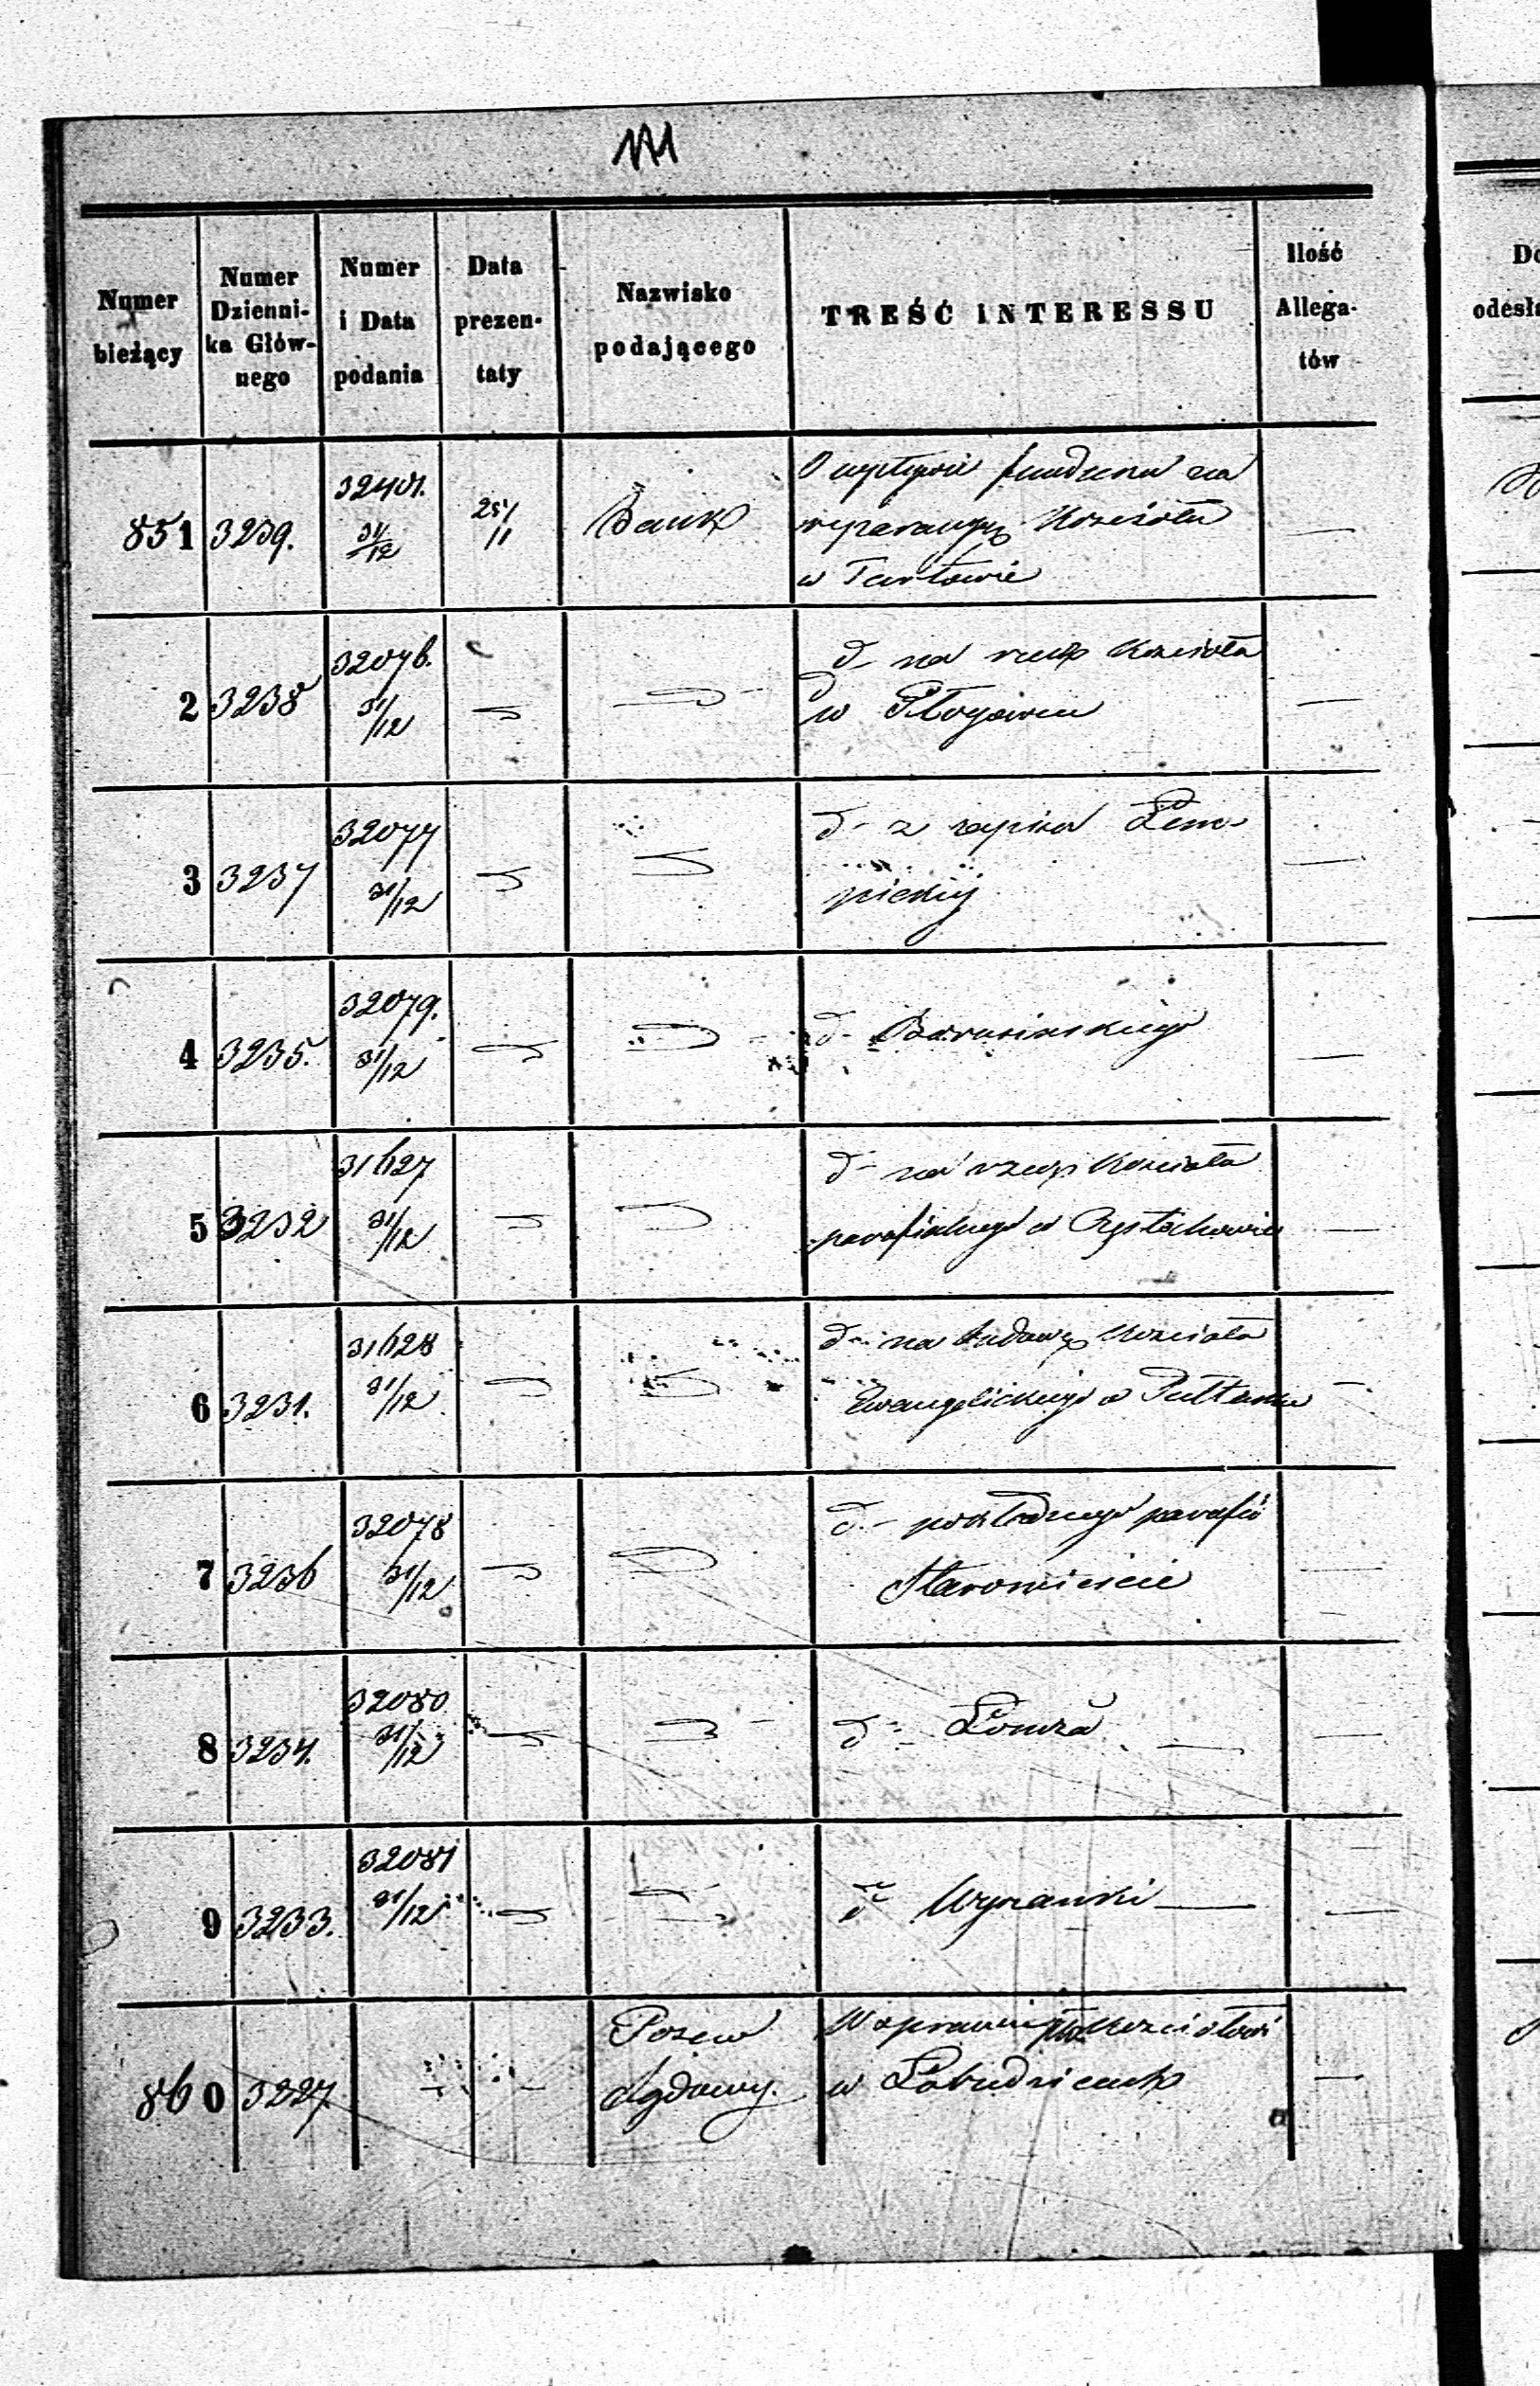 171
Numer bieżący
Numer Dzienni-ka Głów-nego
Numer i Data podania
Data prezen-taty
Nazwisko podającego
TREŚĆ INTERESSU
Ilość Allega-tów
851 3239. 32401. 31/12 25/11 Bank
O wpływie funduszu na
reparacyę Kościoła
w Tarłowie
2 3238 32076. 31/12
d- na rzecz Kościoła
w
3 3237 32077 31/12
d- z zapisu Łem-
pickiej
4 3235. 32079. 31/12
d-
5 3232 31627 31/12
d- na rzecz Kościoła
parafialnego w
6 3231. 31628 31/12
d- na budowę Kościoła
Ewangelickiego w Pułtusku
7 3236 32078 31/12
d- pokładnego parafii
Staromieście
8 3234. 32080 31/12
d- Łomża
9 3233. 32081 31/12
d-
860 3227. Pozew
W sprawie Kościołowi
w Łobudzicach